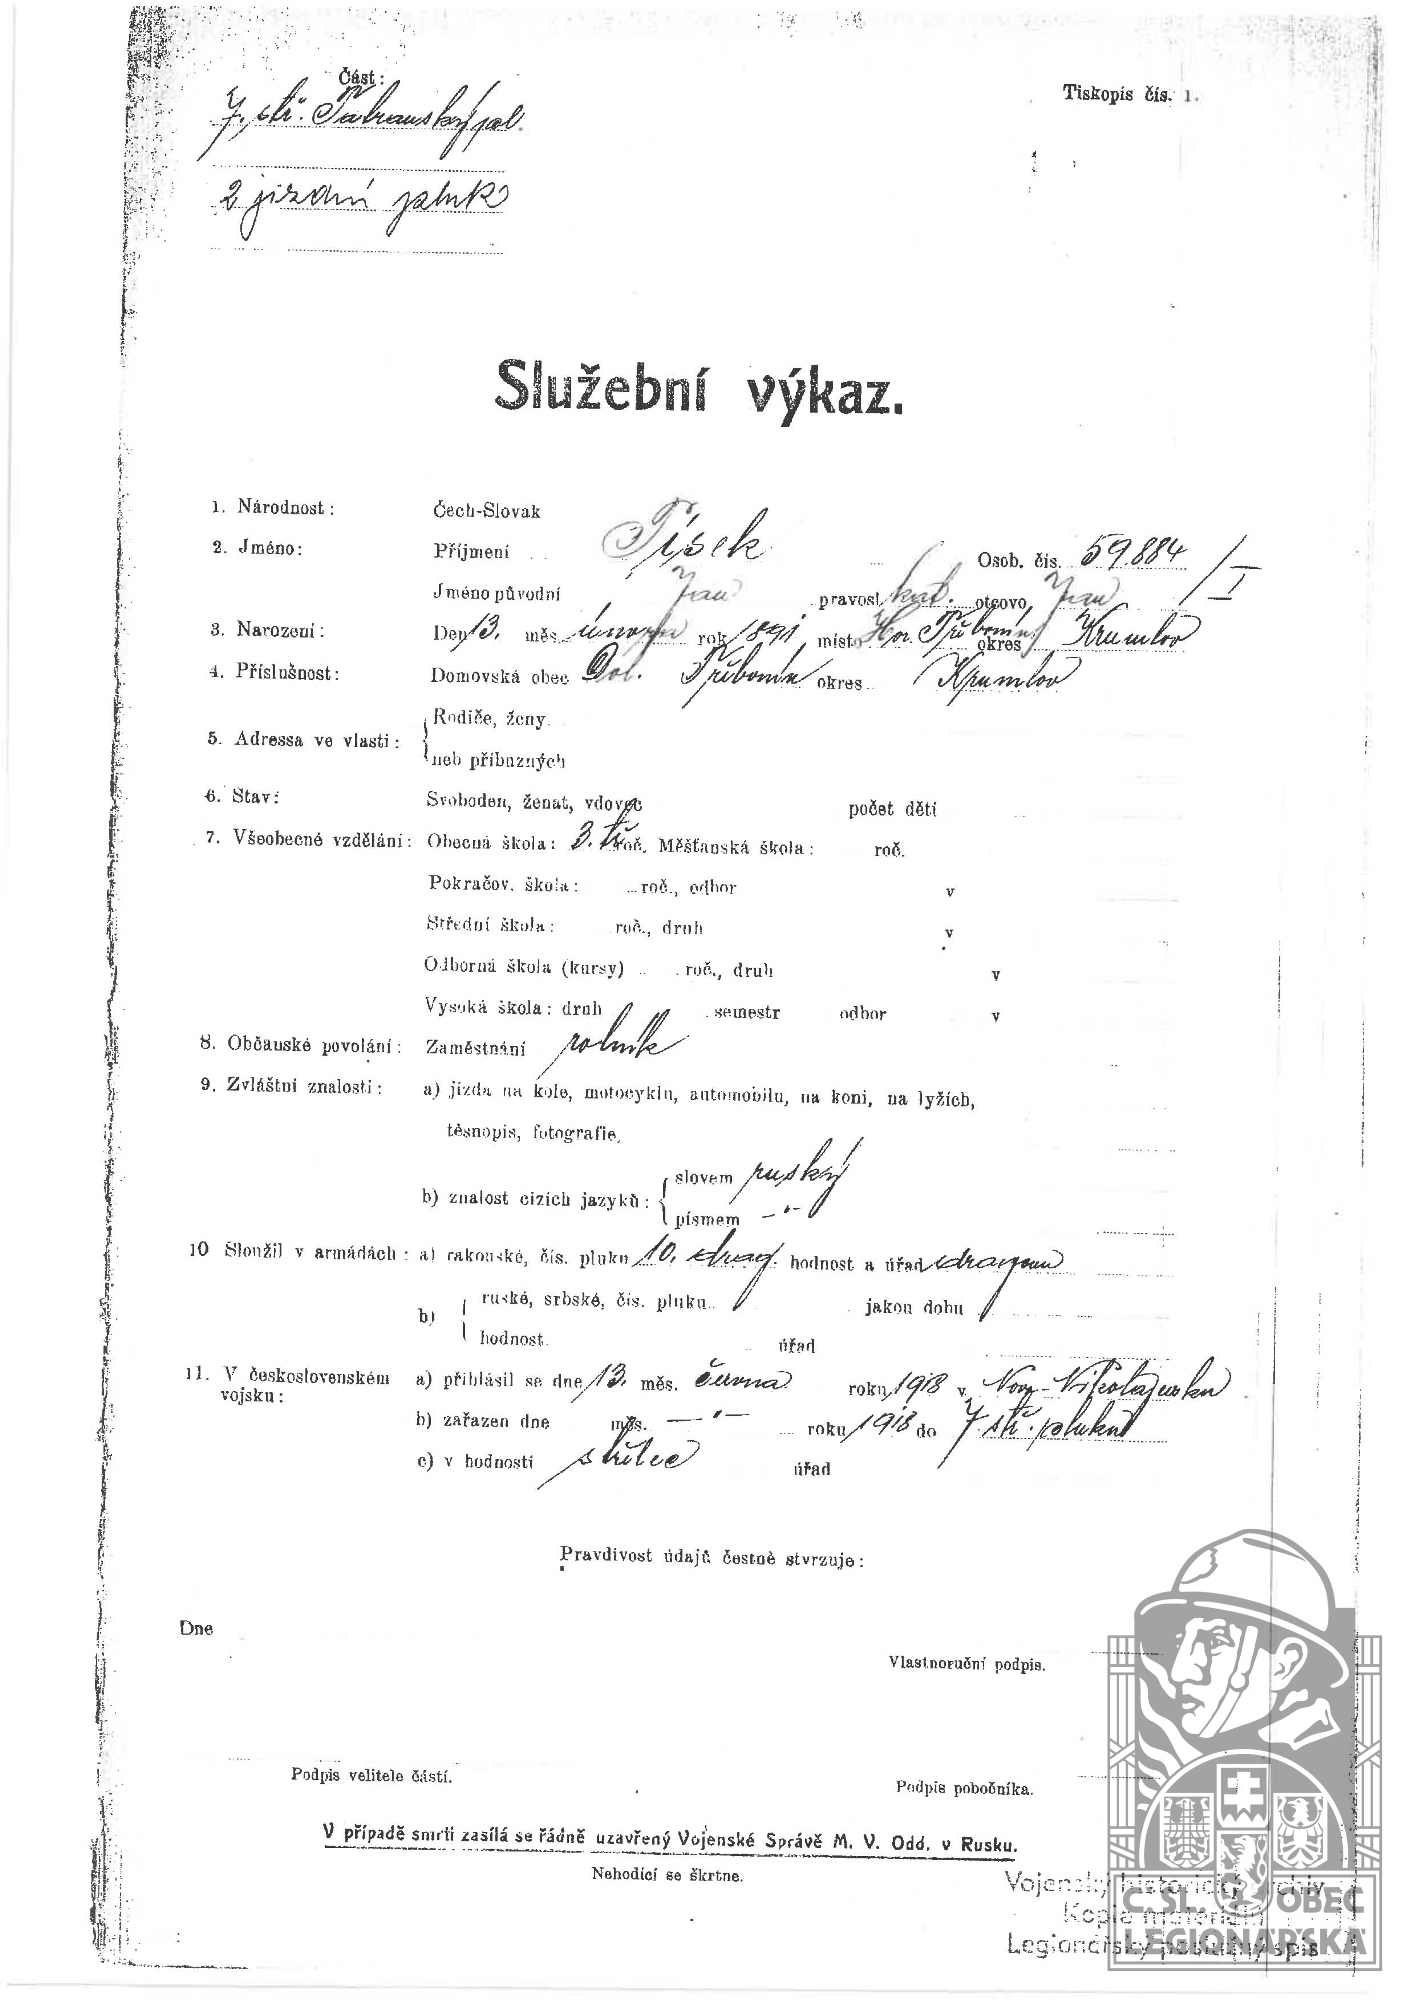 Část:
Tiskopis čís. 1.
7. stř. Tatranský pl.
2 jízdní pluk
Služební výkaz.
1. Národnost: Čech-Slovak
2. Jméno: Příjmení Písek Osob. čís. 59.884 / I I
Jméno původní Jan pravosl. kat. otcovo, Jan
3. Narození: Den 13. měs. února rok 1891, místo Hor. Třebonín okres Krumlov
4. Příslušnost: Domovská obec Dol. Třebonín okres Krumlov
5. Adressa ve vlasti: Rodiče, ženy
neb příbuzných
6. Stav: Svoboden, ženat, vdovec počet dětí
7. Všeobecné vzdělání: Obecná škola: 3. tř. roč. Měšťanská škola: roč.
Pokračov. škola: roč., odbor v
Střední škola: roč., druh v
Odborná škola (kursy) roč., druh v
Vysoká škola: druh semestr odbor v
8. Občanské povolání: Zaměstnání rolník
9. Zvláštní znalosti: a) jízda na kole, motocyklu, automobilu, na koni, na lyžích,
těsnopis, fotografie,
b) znalost cizích jazyků: slovem ruský
písmem –"–
10 Sloužil v armádách: a) rakouské, čís. pluku 10. drag. hodnost a úřad dragoun
b) ruské, srbské, čís. pluku jakou dobu
hodnost úřad
11. V československém vojsku: a) přihlásil se dne 13. měs. června roku 1918 v Novo-Nikolajevsku
b) zařazen dne měs. –"– roku 1918 do 7 stř. pluku
c) v hodnosti střelec úřad
Pravdivost údajů čestně stvrzuje:
Dne
Vlastnoruční podpis.
Podpis velitele části.
Podpis pobočníka.
V případě smrti zasílá se řádně uzavřený Vojenské Správě M. V. Odd. v Rusku.
Nehodící se škrtne.
Vojenský historický archiv
Kopie materiálu
Legionářský poslužný spis
ČSL. OBEC
LEGIONÁŘSKÁ